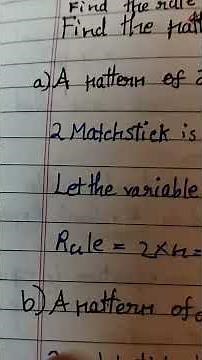 Find the rule
Find the
a) A pattern of
2 Matchstick is
Let the variable
Rule = 2×n=
b) A pattern of